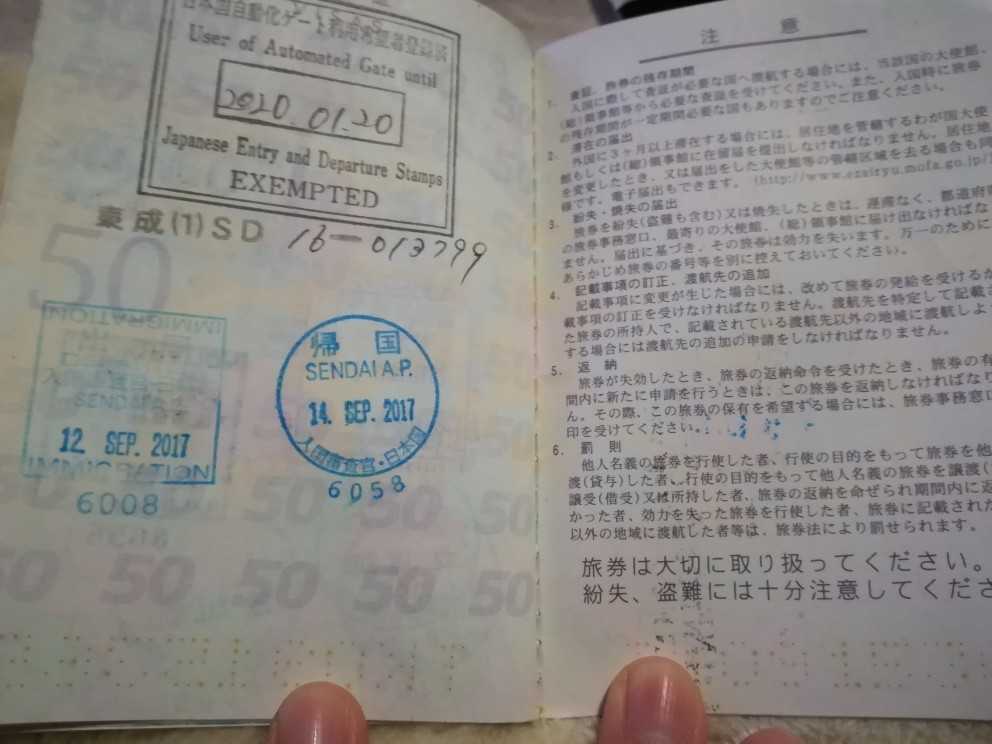 日本国自動化ゲート利用希望者登録済
User of Automated Gate until
2020.01.20
Japanese Entry and Departure Stamps
EXEMPTED
東成(1)SD 16-013799
50
IMMIGRATION
SENDAI A.P.
12 SEP. 2017
IMMIGRATION
6008
帰国
SENDAI A.P.
14. SEP. 2017
入国審査官・日本国
6058
50 50 50
50 50 50 50 50
注意
1. 査証、旅券の残存期間
入国に際して査証が必要な国へ渡航する場合には、当該国の大使館、
(総)領事館等から必要な査証を受けてください。また、入国時に旅券
の残存期間が一定期間必要な国もありますのでご注意ください。
2. 滞在の届出
外国に3ヶ月以上滞在する場合には、居住地を管轄するわが国大使
館もしくは(総)領事館に在留届を提出しなければなりません。居住地
を変更したとき、又は届出をした大使館等の管轄区域を去る場合も同
様です。電子届出もできます。(http://www.ezairyu.mofa.go.jp/
3. 紛失・焼失の届出
旅券を紛失(盗難も含む)又は焼失したときは、遅滞なく、都道府
の旅券事務窓口、最寄りの大使館、(総)領事館に届け出なければな
ません。届出に基づき、その旅券は効力を失います。万一のために
あらかじめ旅券の番号等を別に控えておいてください。
4. 記載事項の訂正、渡航先の追加
記載事項に変更が生じた場合には、改めて旅券の発給を受けるか
載事項の訂正を受けなければなりません。渡航先を特定して記載さ
た旅券の所持人で、記載されている渡航先以外の地域に渡航しよ
する場合には渡航先の追加の申請をしなければなりません。
5. 返納
旅券が失効したとき、旅券の返納命令を受けたとき、旅券の有
間内に新たに申請を行うときは、この旅券を返納しなければなり
ん。その際、この旅券の保有を希望する場合には、旅券事務窓口
印を受けてください。
6. 罰則
他人名義の旅券を行使した者、行使の目的をもって旅券を他
渡(貸与)した者、行使の目的をもって他人名義の旅券を譲渡(
譲受(借受)又は所持した者、旅券の返納を命ぜられ期間内に返
かった者、効力を失った旅券を行使した者、旅券に記載された
以外の地域に渡航した者等は、旅券法により罰せられます。
旅券は大切に取り扱ってください。
紛失、盗難には十分注意してくださ